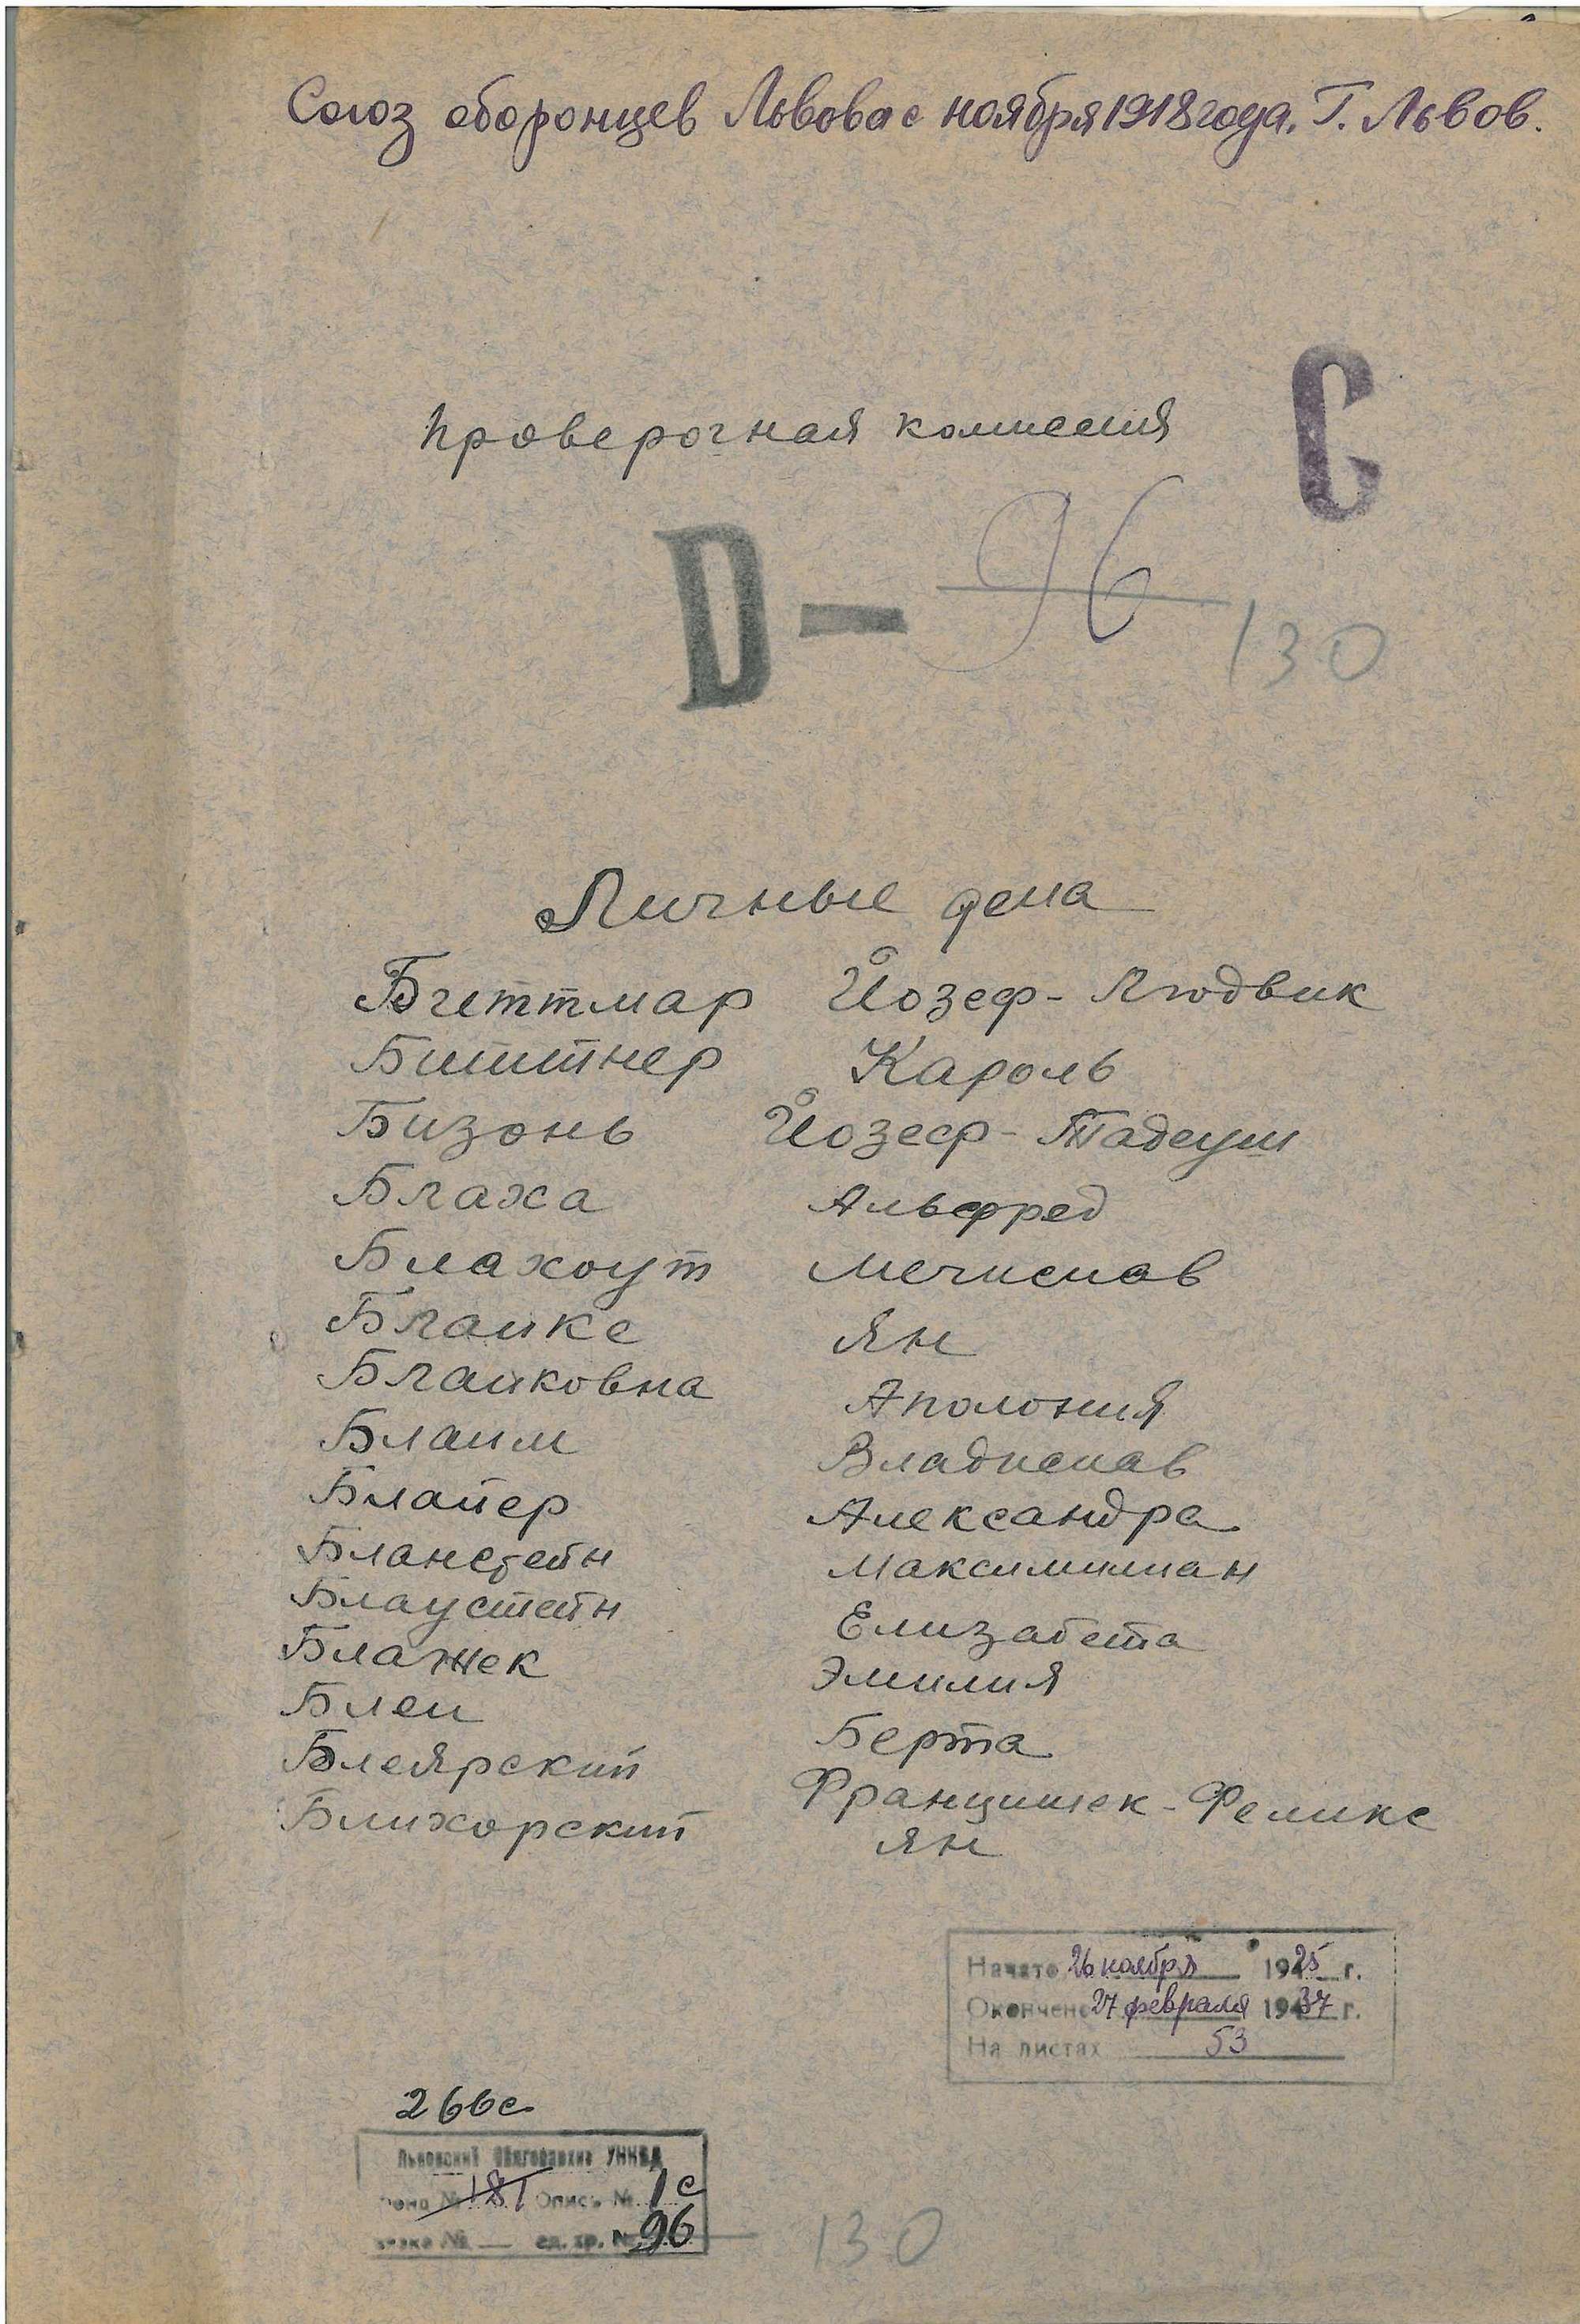 Союз оборонцев Львова с ноября 1918 года. Г. Львов.
С
Проверочная комиссия
D — 96
130
Личные дела
Биттмар Йозеф - Людвик
Биттнер Кароль
Бизонь Йозеф - Тадеуш
Блаха Альфред
Блахоут Мечислав
Блаике Ян
Блаиковна Аполония
Блаим Владислав
Блайер Александра
Бланстейн Максимилиан
Блаустейн Елизабета
Блажек Эмилия
Блеи Берта
Блеярский Францишек - Феликс
Блихорский Ян
Начато 26 ноября 1925 г.
Окончено 27 февраля 1937 г.
На листах 53
266с
Львовский Облгосархив УНКВД
Фонд № 181 Опись № 1с
Связка № — ед. хр. № 96
130